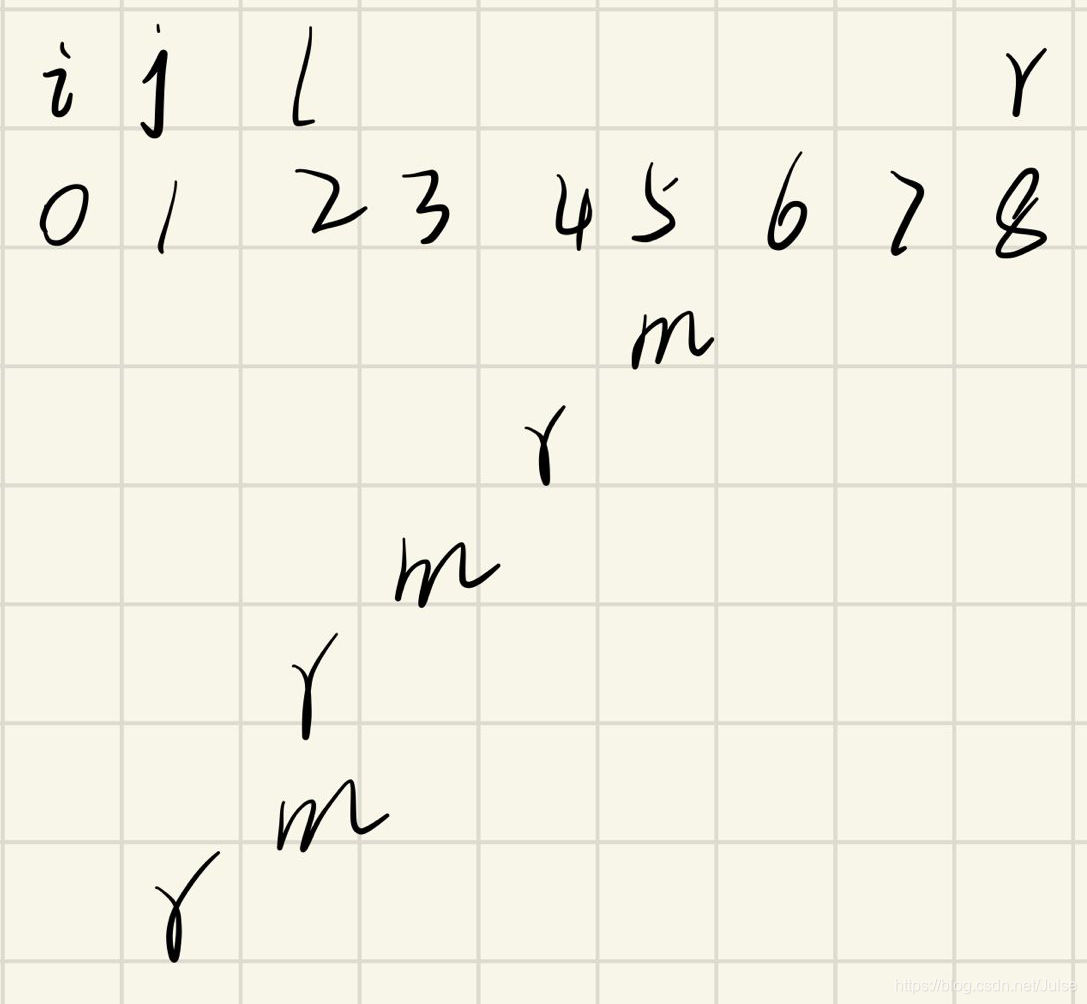 i j l r
0 1 2 3 4 5 6 7 8
m
r
m
r
m
r
https://blog.csdn.net/Julse